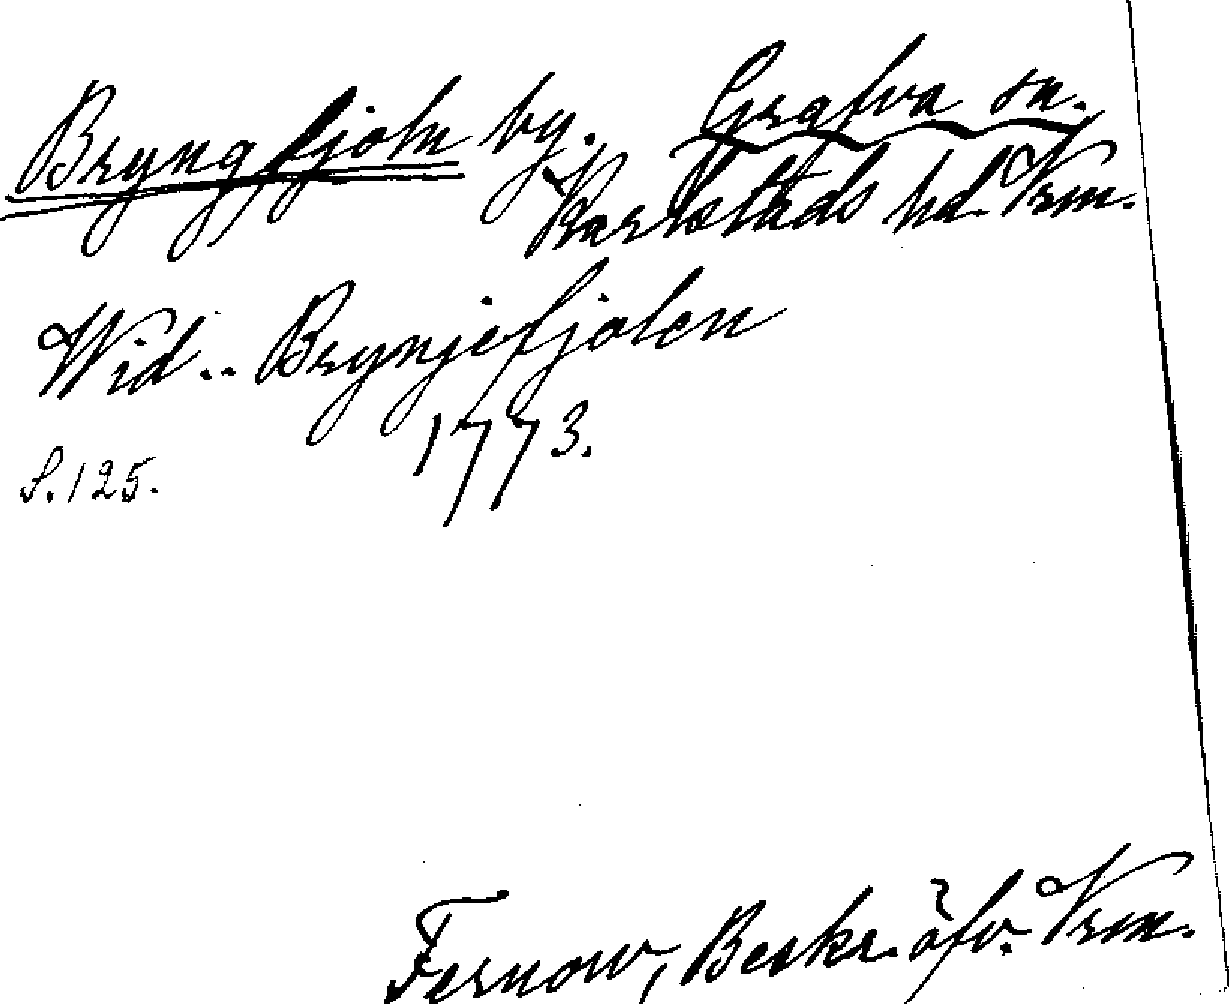 Bryngfjoln by. Grafva sn.
Karlstads hd. Vrm.
Wid.. Brynjefjolen
1773.
S. 125.
Fernow, Beskr. öfv. Vrm.